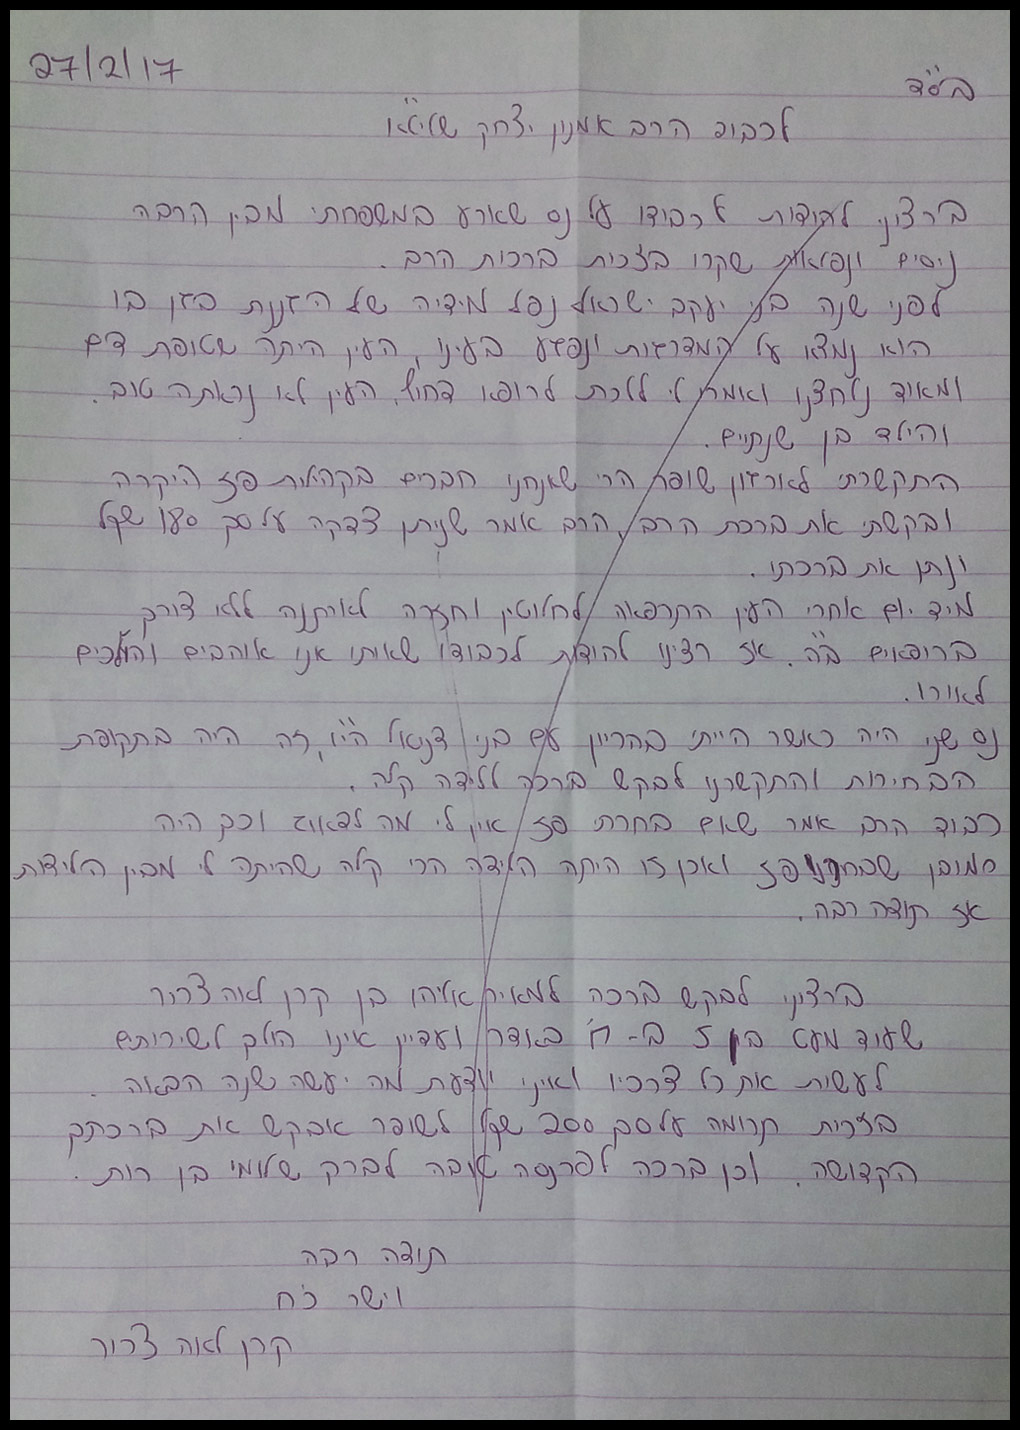 27/2/17
בס"ד
לכבוד הרב אמנון יצחק שליט"א
ברצוני להודות לכבודו על נס שארע במשפחתי מבין הרבה
ניסים ונפלאות שקרו בזכות ברכות הרב.
לפני שנה בני יעקב ישראל נפל מידיה של הגננת בגן בו
הוא נמצא על המדרגות ונפגע בעינו, העין היתה שטופת דם
ומאוד נלחצנו ואמרו לי ללכת לרופא דחוף, העין לא נראתה טוב.
והילד בן שנתיים.
התקשרתי לארגון שופר הרי שאנחנו חברים בקהילות פז היקרה
ובקשתי את ברכת הרב, הרב אמר שניתן צדקה על סך שקל
ונתן את ברכתו.
מיד יום אחרי העין התרפאה לחלוטין וחזרה לאיתנה ללא צורך
ברופאים ב"ה. אז רצינו להודות לכבודו שאותו אנו אוהבים והולכים
לאורו.
נס שני היה כאשר הייתי בהריון עם בני דניאל הי"ו, זה היה בתקופת
הבחירות והתקשרנו לבקש ברכה ללידה קלה.
כבוד הרב אמר שאם בחרתי פז אין לי מה לדאוג וכך היה
כמובן שבחרנו פז ואכן זו היתה הלידה הכי קלה שהיתה לי מבין הלידות
אז תודה רבה.
ברצוני לבקש ברכה למאיר אליהו בן קרן לאה צרור
שעוד מעט בן 5 ב-ח' באדר ועדיין אינו הולך לשירותים
לעשות את כל צרכיו ואיני יודעת מה יעשה שנה הבאה.
בזכות תרומה על סך 200 שקל לשופר אבקש את ברכתך
הקדושה. וכן ברכה לפרנסה טובה לברק שלומי בן רות.
תודה רבה
וישר כ"ח
קרן לאה צרור